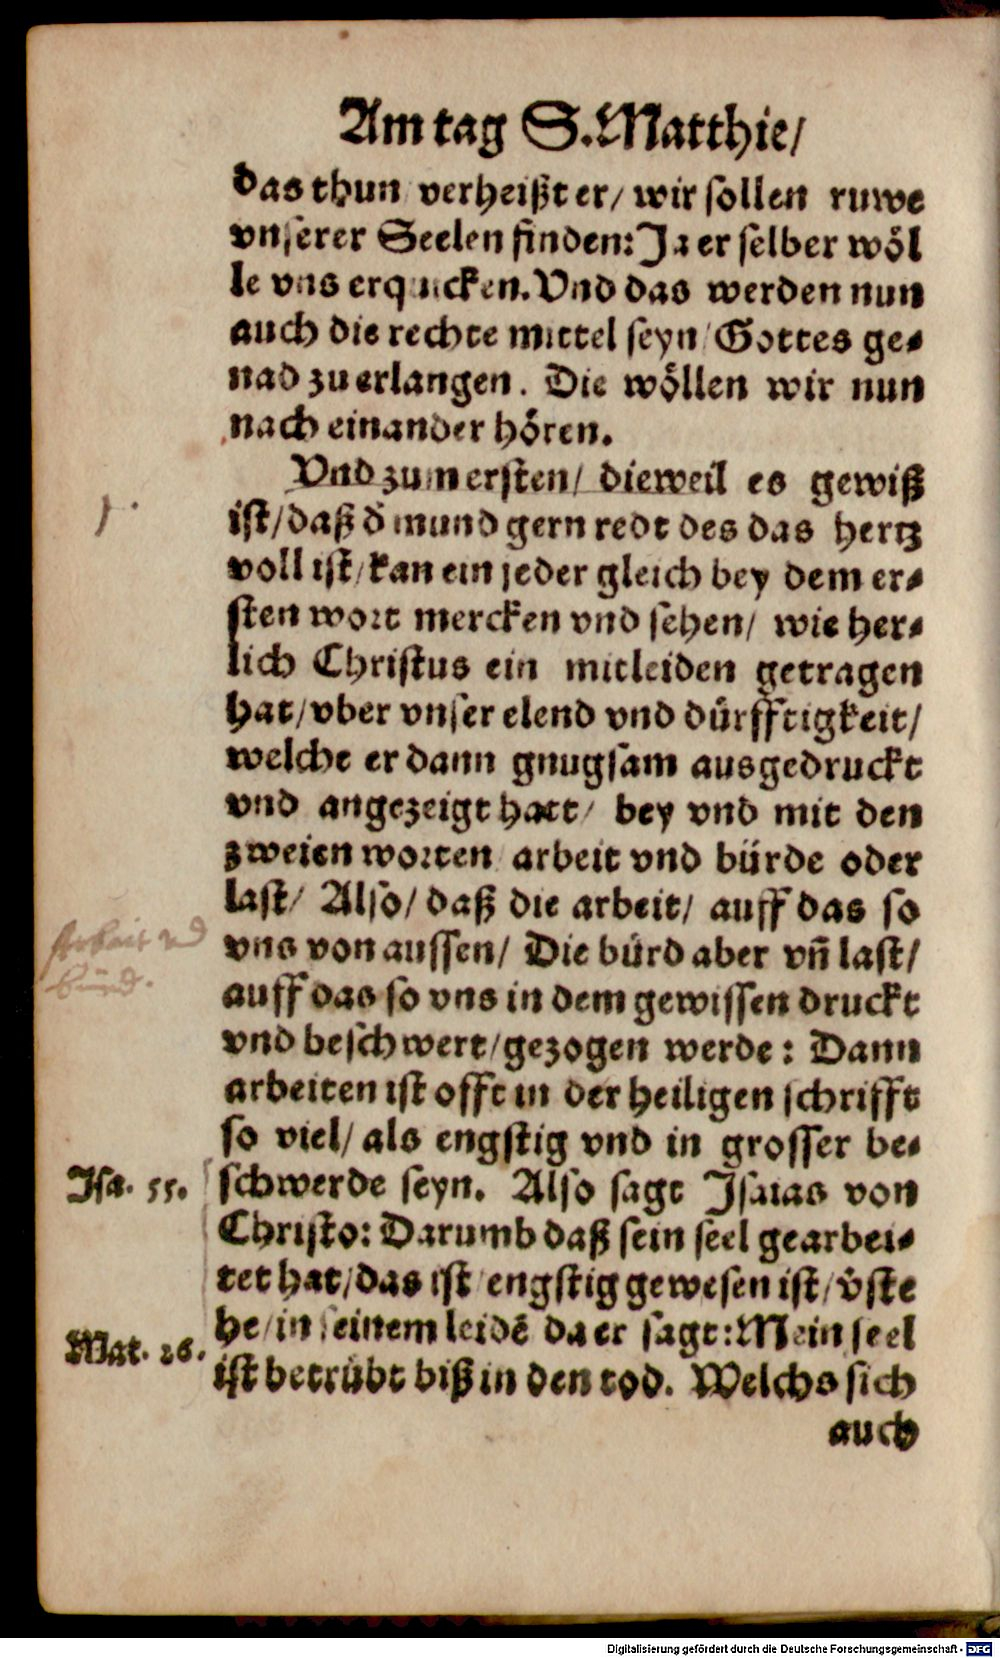 Am tag S. Matthie/
das thun verheißt er/ wir sollen ruwe
vnserer Seelen finden: Ja er selber wöl
le vns erquicken. Vnd das werden nun
auch die rechte mittel seyn/ Gottes ge-
nad zu erlangen. Die wöllen wir nun
nach einander hören.
Vnd zum ersten/ dieweil es gewiß
1.
ist/ daß d̛ mund gern redt des das hertz
voll ist/ kan ein jeder gleich bey dem er-
sten wort mercken vnd sehen/ wie her-
lich Christus ein mitleiden getragen
hat/ vber vnser elend vnd dürfftigkeit/
welche er dann gnugsam ausgedruckt
vnd angezeigt hatt/ bey vnd mit den
zweien worten arbeit vnd bürde oder
last/ Also/ daß die arbeit/ auff das so
Arbeit vnd
bürd.
vns von aussen/ Die bürd aber vñ last/
auff das so vns in dem gewissen druckt
vnd beschwert/ gezogen werde: Dann
arbeiten ist offt in der heiligen schrifft
so viel/ als engstig vnd in grosser be-
Isa. 55.
schwerde seyn. Also sagt Isaias von
Christo: Darumb daß sein seel gearbei-
tet hat/ das ist engstig gewesen ist/ v̛ste
he/ in seinem leidē da er sagt: Mein seel
Mat. 26.
ist betrübt biß in den tod. Welchs sich
auch
Digitalisierung gefördert durch die Deutsche Forschungsgemeinschaft - DFG